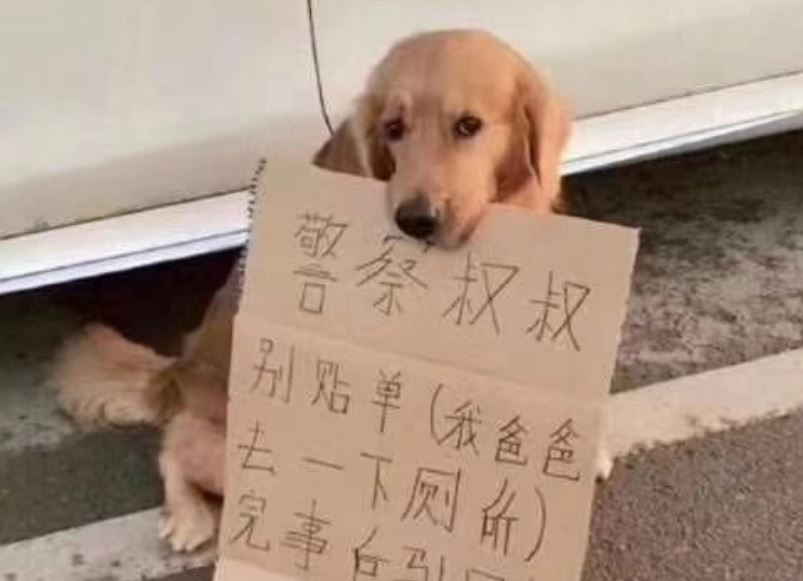 警察叔叔
别贴单(我爸爸
去一下厕所)
完事